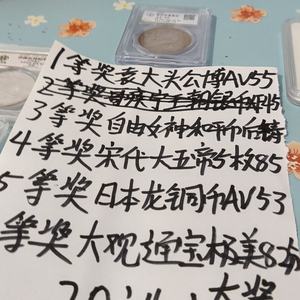 1等奖袁大头公博AV55
2等奖
3等奖自由女神和平币后精
4等奖宋代大五帝5枚85
5等奖日本龙铜币AV53
等奖大观通宝极美82